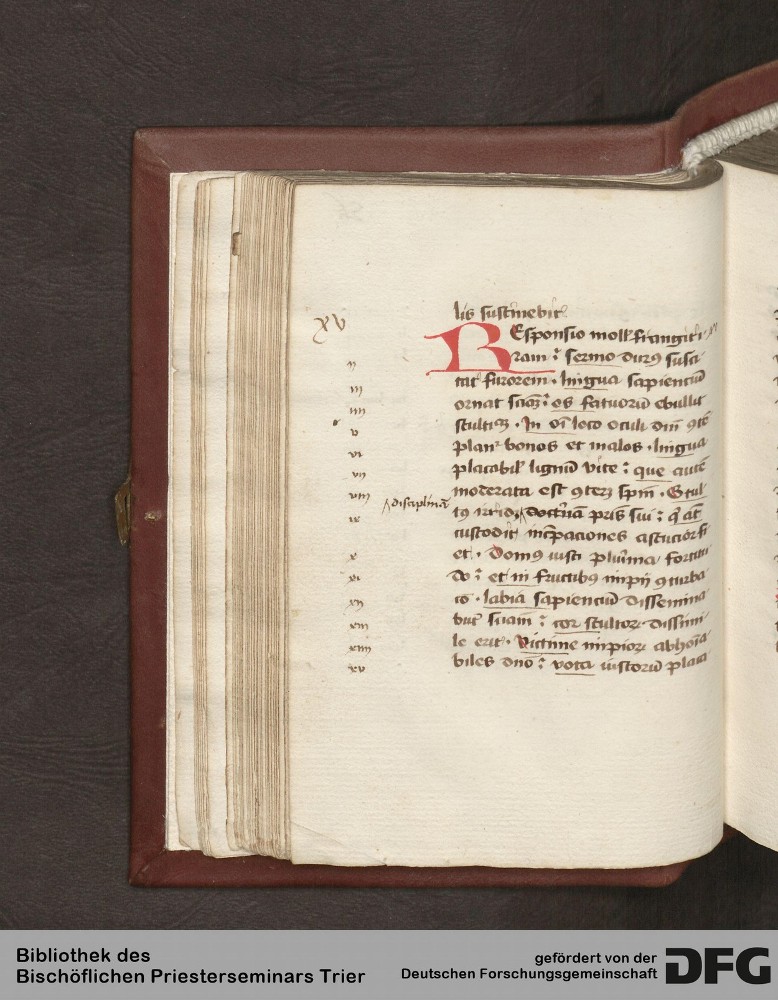 XV
lis sustinebit
Responsio moll' frangit i
ram : sermo durus susci
tat furorem · lingua sapiencium
ornat sciam : os fatuorum ebullit
stulticiam · In omi loco oculi dni
bonos et malos · lingua
placabil' lignum vite : que autem
moderata est spm · Stul
disciplinam
tus irrid doctrinam pris sui : qui at
custodit increpaciones astucior fi
et · Domus iusti plurima fortitu
do : et in fructibus impii conturba
co · labia sapiencium dissemina
bunt sciam : cor stultorum dissimi
le erit · Victime impiorum abhoia
biles dno : vota iustorum placa
ii
iii
iiii
v
vi
vii
viii
ix
x
xi
xii
xiii
xiiii
xv
Bibliothek des
Bischöflichen Priesterseminars Trier
gefördert von der
Deutschen Forschungsgemeinschaft
DFG